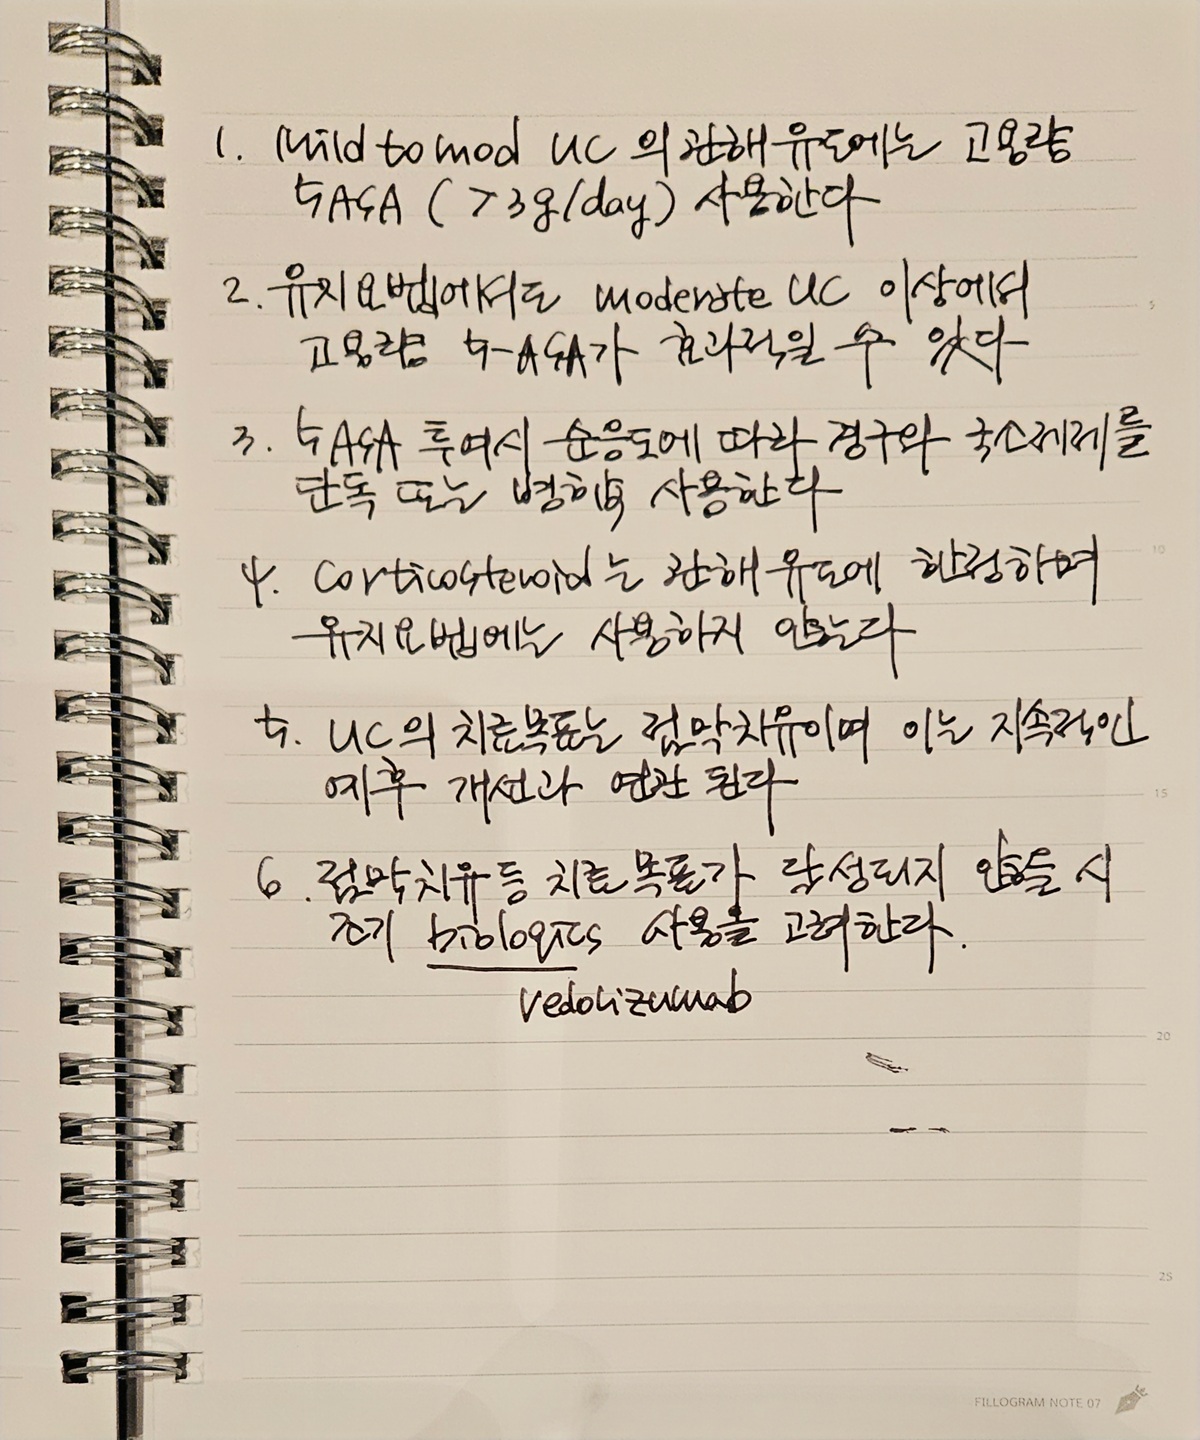 1. Mild to mod UC 의 관해 유도에는 고용량
5ASA ( >3g/day) 사용한다
2. 유지요법에서도 moderate UC 이상에서
고용량 5-ASA가 효과적일 수 있다
3. 5ASA 투여시 순응도에 따라 경구와 국소제제를
단독 또는 병합 사용한다
4. corticosteroid는 관해 유도에 한정하며
유지요법에는 사용하지 않는다
5. UC의 치료목표는 점막치유이며 이는 지속적인
예후 개선과 연관 된다
6. 점막치유 등 치료목표가 달성되지 않을 시
조기 biologics 사용을 고려한다.
vedolizumab
5
10
15
20
25
FILLOGRAM NOTE 07